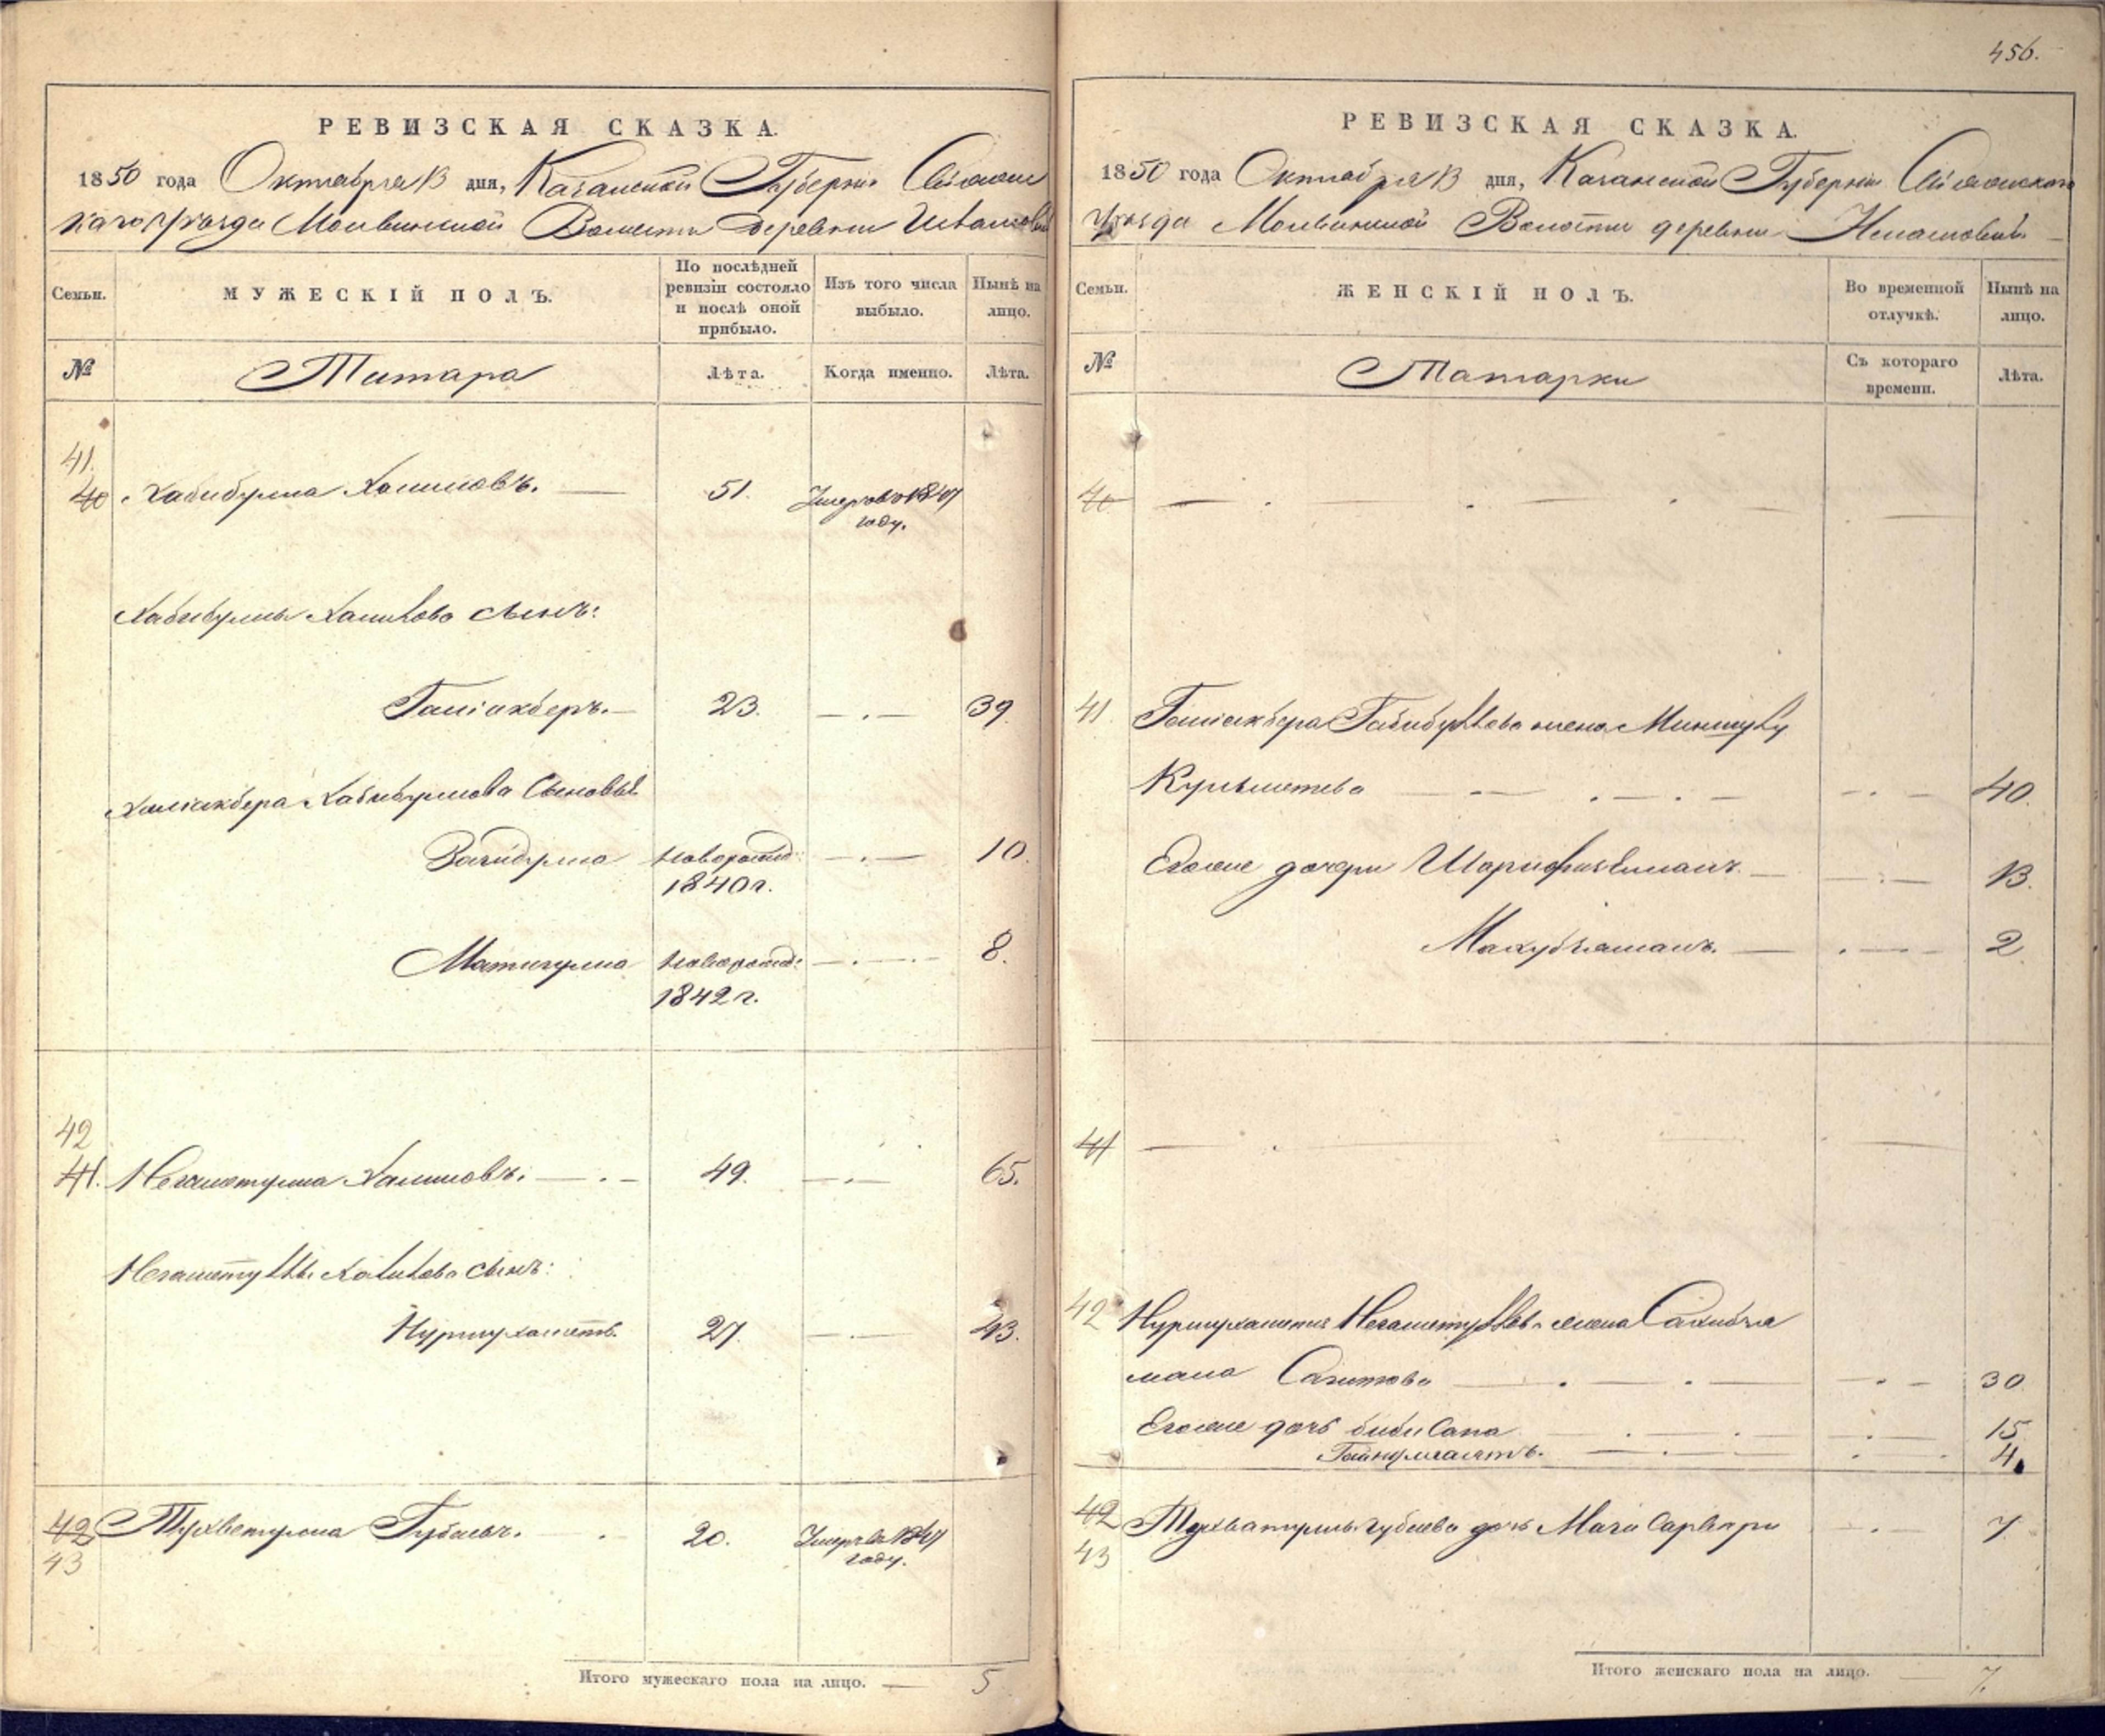 456.
РЕВИЗСКАЯ СКАЗКА.
1850 года Октября 13 дня, Казанской Губернiи Свiяжс
каго Уѣзда Молвинской Волости деревни
Семьи.
МУЖЕСКІЙ ПОЛЪ.
По послѣдней ревизіи состояло и послѣ оной прибыло.
Изъ того числа выбыло.
Нынѣ на лицо.
№
Татара
Лѣта.
Когда именно.
Лѣта.
41.
40 Хабибулла Халиловъ. — 51. Умеръ въ 1847
году.
Хабибуллы Халилова сынъ:
Галiакберъ. — 23. — . — 39.
Халiакбера Хабибуллова Сыновья
Загидулла новорожд: — . — 10.
1840 г.
Матигулла новорожд: — . — . — 8.
1842 г.
42
41. Негаметулла Халиловъ. — . — 49. — . — 65.
Негаметуллы Халилова сынъ:
Нурмухаметъ. 27. — . — 43.
42 Тухветулла Губаевъ. . 20. Умеръ въ 1847
43 году.
Итого мужескаго пола на лицо. — 5
РЕВИЗСКАЯ СКАЗКА.
1850 года Октября 13 дня, Казанской Губернiи Свiяжскаго
Уѣзда Молвинской Волости деревни
Семьи.
ЖЕНСКІЙ ПОЛЪ.
Во временной отлучкѣ.
Нынѣ на лицо.
№
Татарки
Съ котораго времени.
Лѣта.
40 — . — . — . —
41. Галiакбера Габибуллова жена
— — . — . — — . — 40.
Егоже дочери — — . — 13.
— . — — 2
41 — . —
42 Нурмухаметя Негаметуллова жена Сахибзя
мала Сагитова — . — . — — . — 30
Егоже дочь биби Сапа — . — . — . — 15
— . — . . 4.
42 Тухватуллы Губаева дочь — . 7
43
Итого женскаго пола на лицо. — 7.